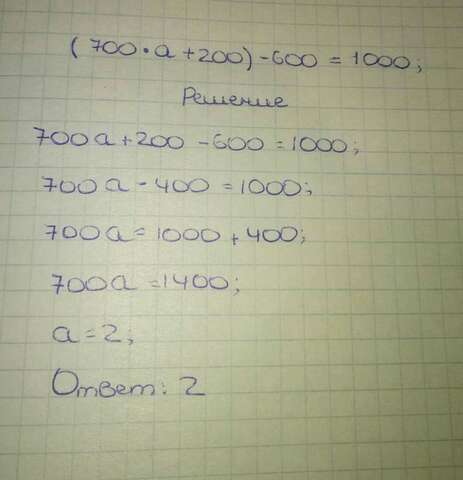 (700·a+200)-600=1000;
Решение
700a+200-600=1000;
700a-400=1000;
700a=1000+400;
700a=1400;
a=2;
Ответ: 2